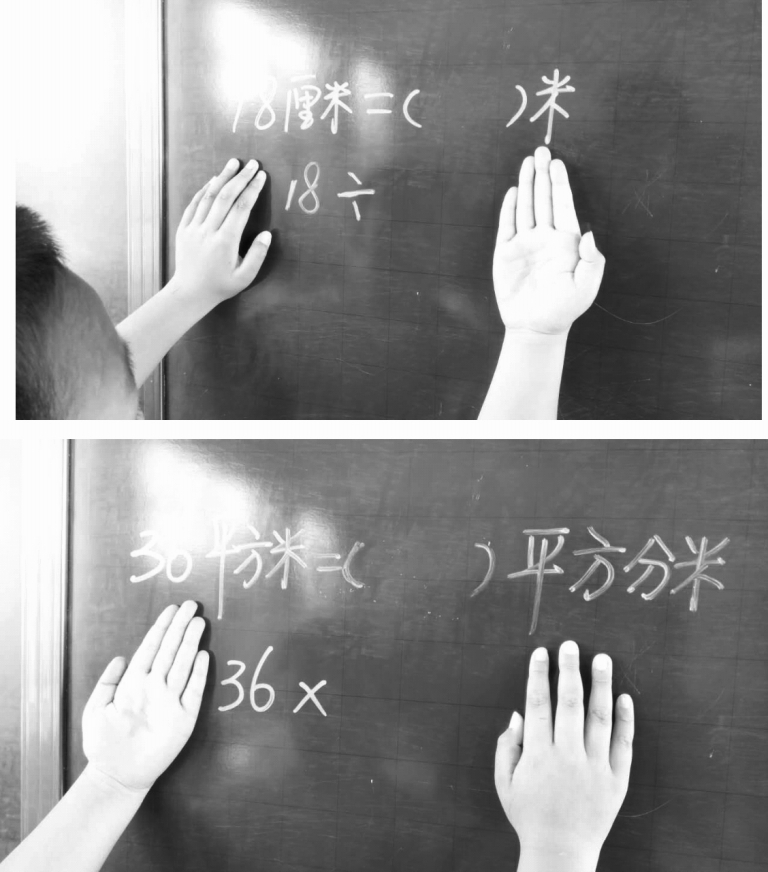 18厘米=( )米
18÷
36平方米=( )平方分米
36×